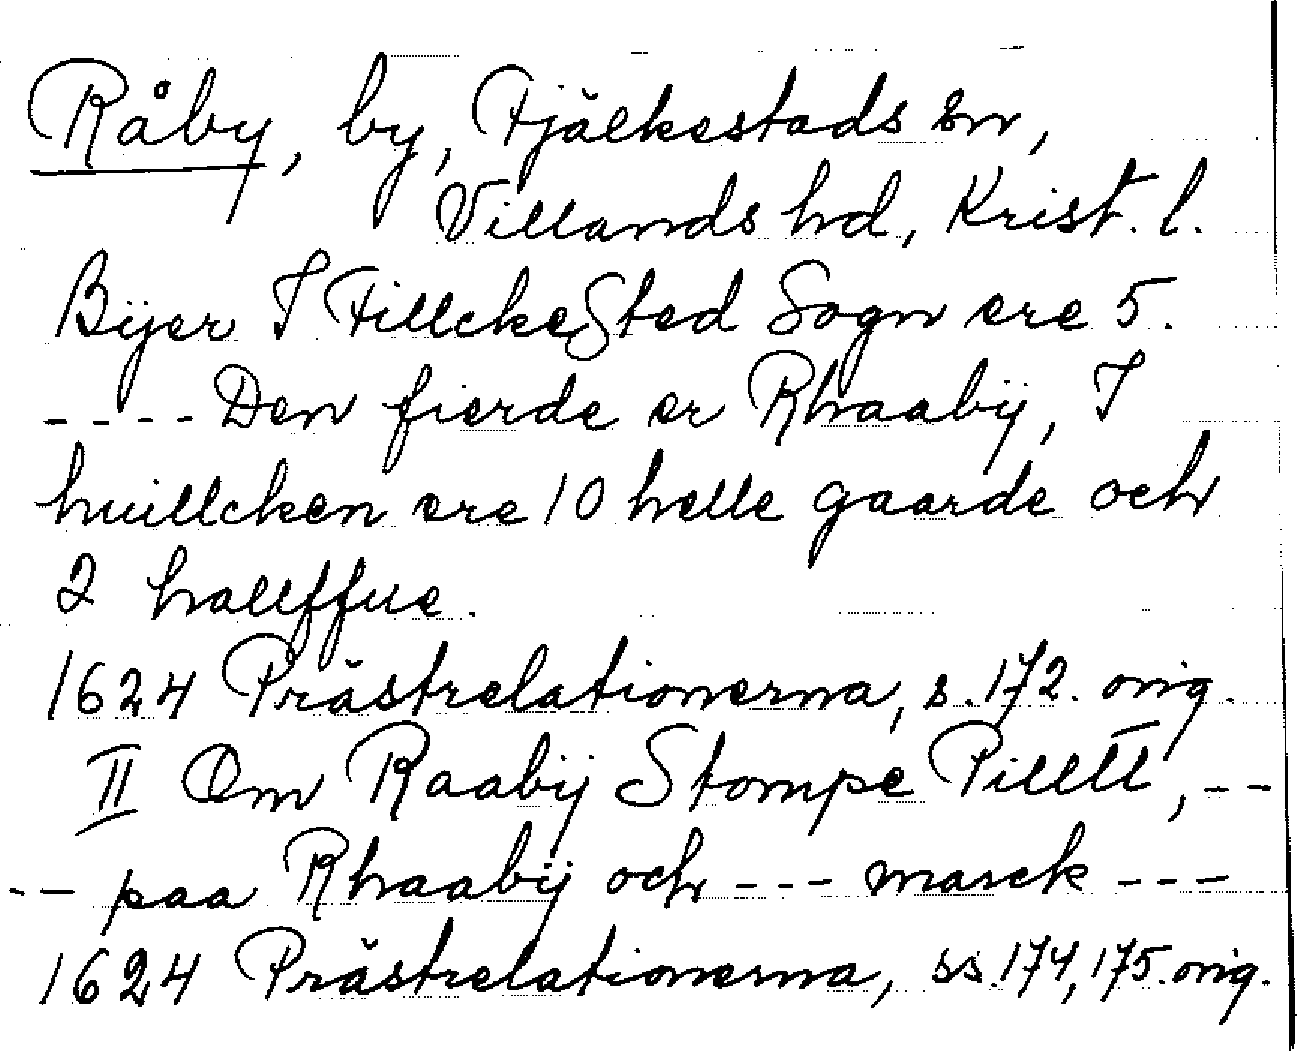 Råby, by, Fjälkestads sn,
Villands hd, Krist. l.
Bÿer I FillckeSted Sogn ere 5.
---- Den fierde er Rhaabÿ, I
huillcken ere 10 helle gaarde och
2 hallffue.
1624 Prästrelationerna, s. 172. orig.
II Om Raabÿ Stompe Pillett, --
-- paa Rhaabÿ och --- marck ---
1624 Prästrelationerna, ss. 174, 175. orig.